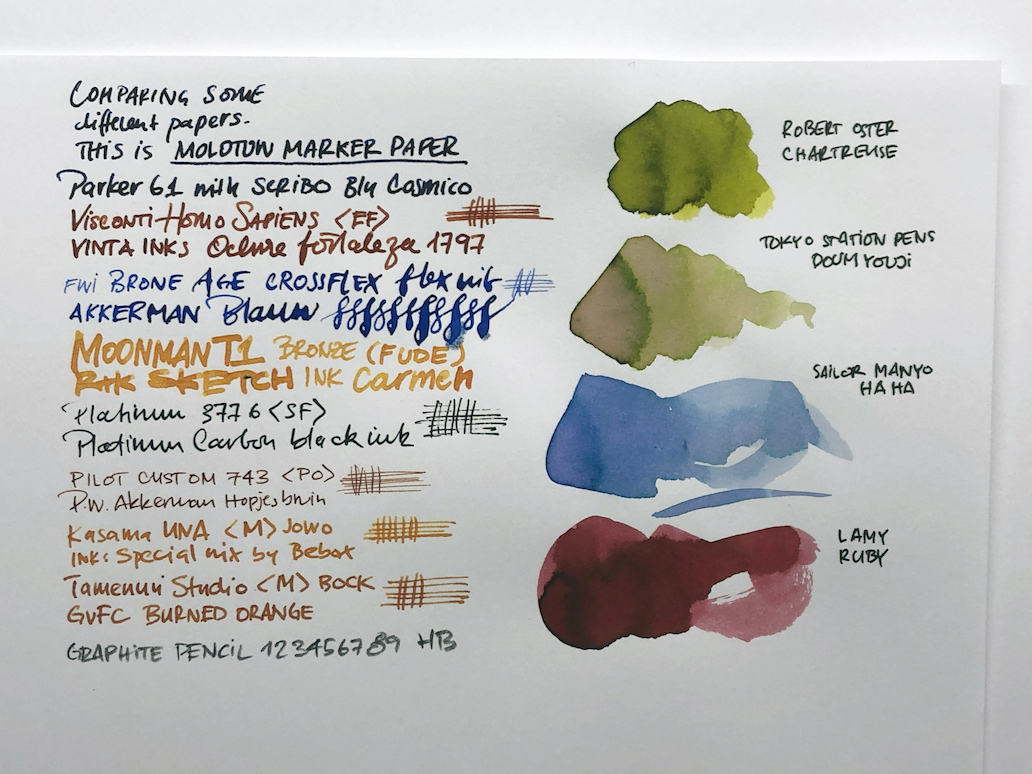 COMPARING SOME
different papers.
THIS is MOLOTOW MARKER PAPER
Parker 61 with SCRIBO Blu Cosmico
VISCONTI HOMO SAPIENS <EF>
VINTA INKS Ochre fortaleza 1797
FWI BRONE AGE CROSSFLEX flex nib
AKKERMAN Blauw
MOONMAN T1 BRONZE (FUDE)
SKETCH INK Carmen
Platinum 3776 <SF>
Platinum Carbon black ink
PILOT CUSTOM 743 <PO>
P.W. Akkerman Hopjesbruin
Kasama UNA <M> Jowo
INK: Special mix by Bebox
Tamenuri Studio <M> BOCK
GvFC BURNED ORANGE
GRAPHITE PENCIL 123456789 HB
ROBERT OSTER
CHARTREUSE
TOKYO STATION PENS
DOUMYOUJI
SAILOR MANYO
HA HA
LAMY
RUBY